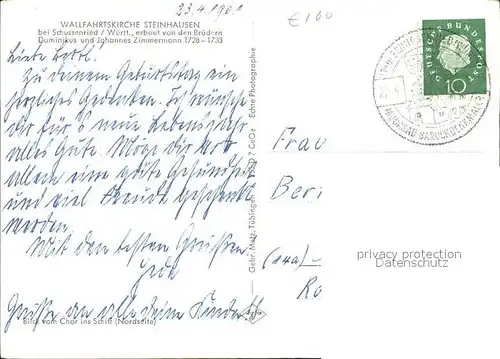 23.4.1961
£100
WALLFAHRTSKIRCHE STEINHAUSEN
bei Schussenried / Württ., erbaut von den Brüdern
Dominikus und Johannes Zimmermann 1728–1733
DEUTSCHE BUNDESPOST
10
Liebe
Zu deinem Geburtstag ein
herzliches Gedenken. Ich wünsche
dir für's neue Lebensjahr
alles Gute. Möge dir vor
allem eine gute Gesundheit
und viel Freude geschenkt
werden.
Mit den besten Grüßen
Grüße an alle deine Kinder
Blick vom Chor ins Schiff (Nordseite)
Gebr. Metz, Tübingen
Echte Photographie
Frau
Beri
(14a)
Ro
privacy protection
Datenschutz